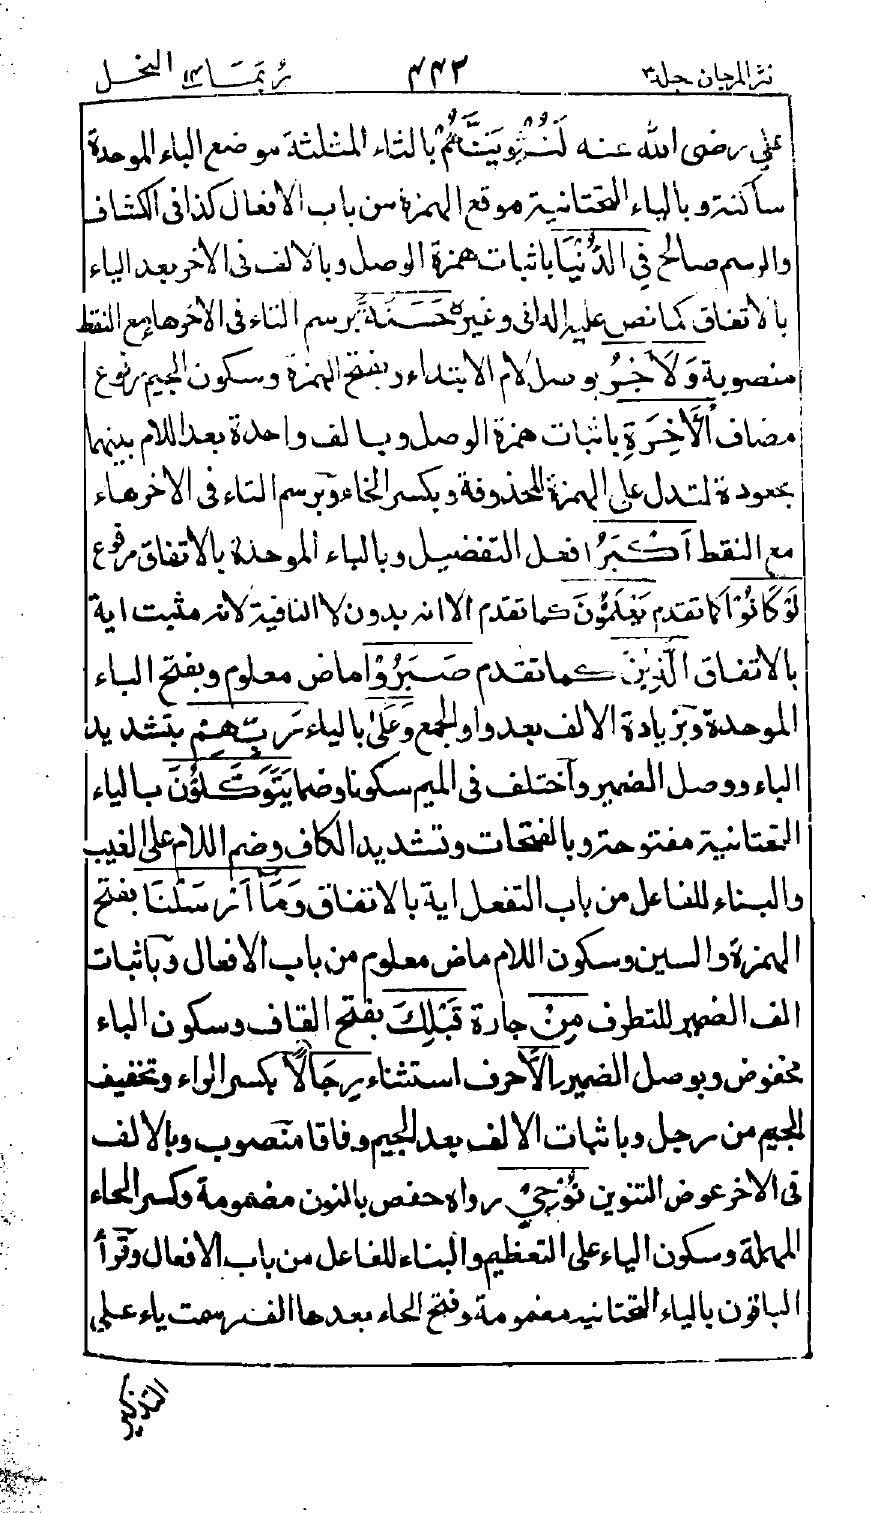 نثر المرجان جلد ٣ ٤٤٢ ربما ١٤ النحل
علي رضى الله عنه لَنُثْوِيَنَّهُمْ بالثاء المثلثة موضع الباء الموحدة
ساكنة وبالياء التحتانية موقع الهمزة من باب الافعال كذا فى الكشاف
والرسم صالح فِي الدُّنْيَا باثبات همزة الوصل وبالالف فى الاخر بعد الياء
بالاتفاق كما نص عليه الدانى وغيره حَسَنَةً برسم التاء فى الاخر هاء مع النقط
منصوبة وَلَاَجْرُ بوصل لام الابتداء وبفتح الهمزة وسكون الجيم مرفوع
مضاف الْآخِرَةِ باثبات همزة الوصل وبالف واحدة بعد اللام بينهما
مجعودة لتدل على الهمزة المحذوفة وبكسر الخاء وبرسم التاء فى الاخر هاء
مع النقط اَكْبَرُ افعل التفضيل وبالباء الموحدة بالاتفاق مرفوع
لَوْ كَانُوْا كما تقدم يَعْلَمُوْنَ كما تقدم الا انه بدون لا النافية لانه مثبت اية
بالاتفاق الَّذِيْنَ كما تقدم صَبَرُوْا ماض معلوم وبفتح الباء
الموحدة وبزيادة الالف بعد واو الجمع وَعَلٰى بالياء رَبِّهِمْ بتشديد
الباء ووصل الضمير واختلف فى الميم سكونا وضما يَتَوَكَّلُوْنَ بالياء
التحتانية مفتوحة وبالفتحات وتشديد الكاف وضم اللام على الغيب
والبناء للفاعل من باب التفعل اية بالاتفاق وَمَا اَرْسَلْنَا بفتح
الهمزة والسين وسكون اللام ماض معلوم من باب الافعال وباثبات
الف الضمير للتطرف مِنْ جارة قَبْلِكَ بفتح القاف وسكون الباء
مخفوض وبوصل الضمير اِلَّا حرف استثناء رِجَالًا بكسر الراء وتخفيف
الجيم من رجل وباثبات الالف بعد الجيم وفاقا منصوب وبالالف
فى الاخر عوض التنوين نُوْحِيْ رواه حفص بالنون مضمومة وكسر الحاء
المهملة وسكون الياء على التعظيم والبناء للفاعل من باب الافعال وقرأ
الباقون بالياء التحتانيه مضمومة وفتح الحاء بعدها الف رسمت ياء على